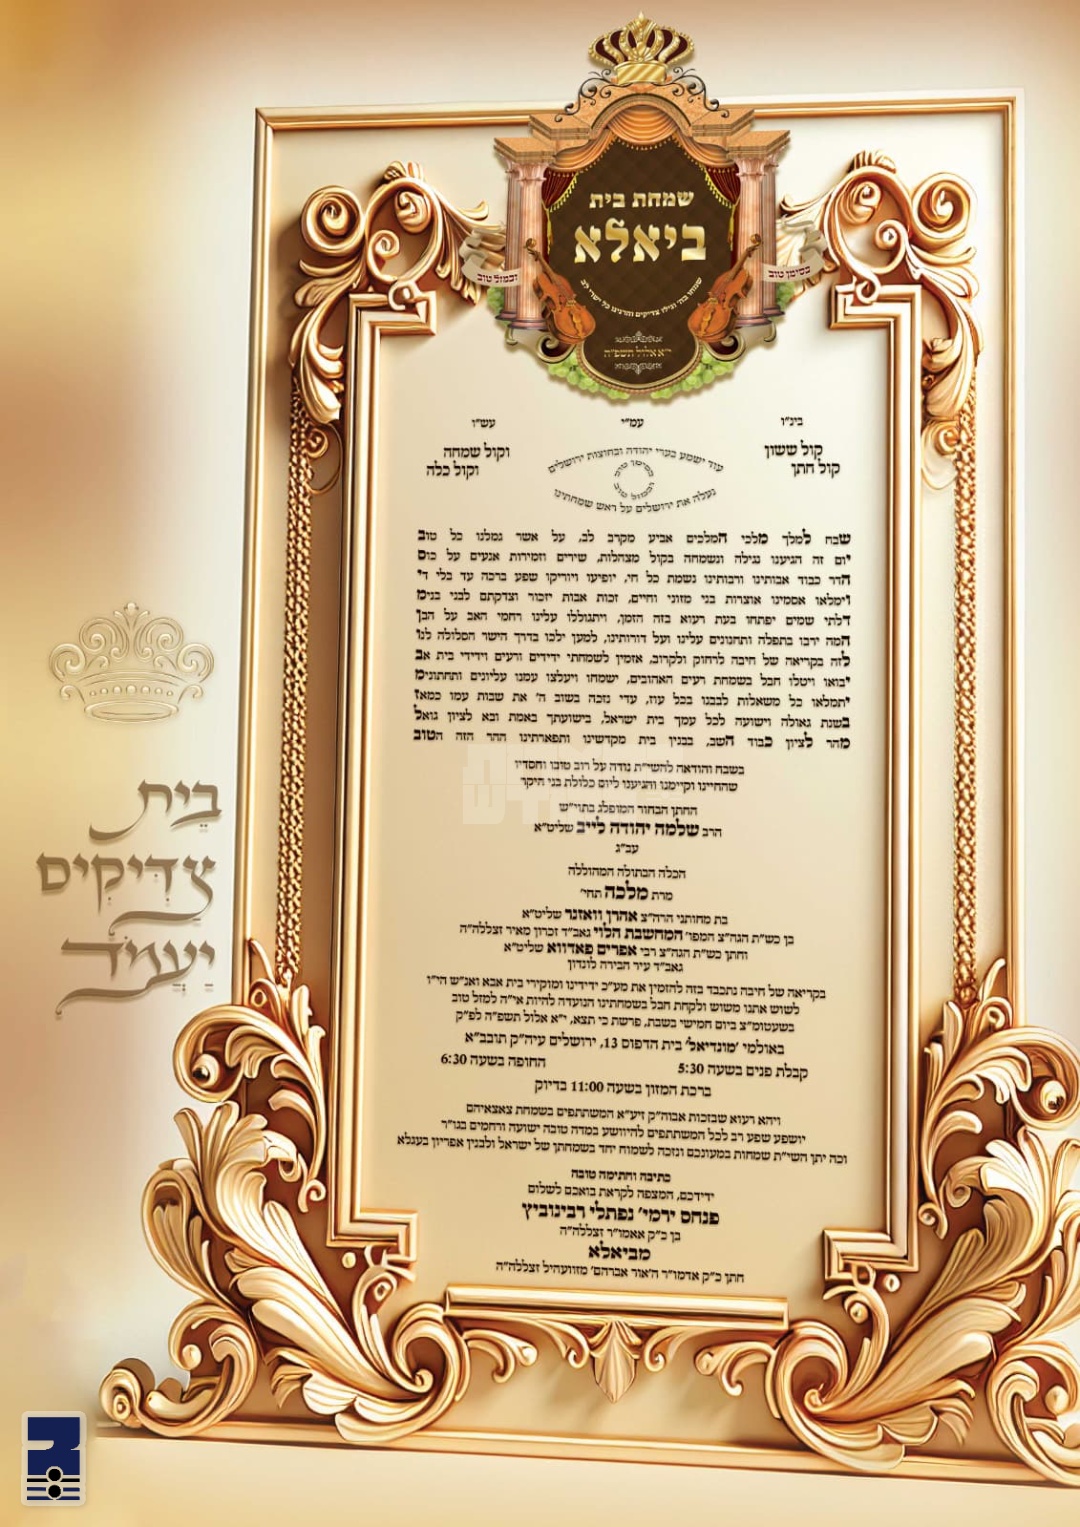 שמחת בית
ביאלא
בסימן טוב
ובמזל טוב
שמחו בה' וגילו צדיקים והרנינו כל ישרי לב
י"א אלול תשפ"ה
בינ"ו
עמ"י
עש"ו
קול ששון
קול חתן
וקול שמחה
וקול כלה
עוד ישמע בערי יהודה ובחוצות ירושלים
בסימן טוב
ובמזל טוב
נעלה את ירושלים על ראש שמחתינו
שבח למלך מלכי המלכים אביע מקרב לב, על אשר גמלנו כל טוב
יום זה הגיענו נגילה ונשמחה בקול מצהלות, שירים וזמירות אנעים על כוס
הדר כבוד אבותינו ורבותינו נשמת כל חי, יופיעו ויוריקו שפע ברכה עד בלי די
וימלאו אסמינו אוצרות בני מזוני וחיים, זכות אבות יזכור וצדקתם לבני בנים
דלתי שמים יפתחו בעת רעוא בזה הזמן, ויתגוללו עלינו רחמי האב על הבן
המה ירבו בתפלה ותחנונים עלינו ועל דורותינו, למען ילכו בדרך הישר הסלולה לנו
לזה בקריאה של חיבה לרחוק ולקרוב, אזמין לשמחתי ידידים ורעים וידידי בית אב
יבואו ויטלו חבל בשמחת רעים האהובים, ישמחו ויעלצו עמנו עליונים ותחתונים
יתמלאו כל משאלות לבבנו בכל עוז, עדי נזכה בשוב ה' את שבות עמו כמאז
בשנת גאולה וישועה לכל עמך בית ישראל, בישועתך באמת ובא לציון גואל
מהר לציון כבוד השב, בבנין בית מקדשינו ותפארתינו ההר הזה הטוב
בשבח והודאה להשי"ת נודה על רוב טובו וחסדיו
שהחיינו וקיימנו והגיענו ליום כלולת בני היקר
החתן הבחור המופלג בתוי"ש
הרב שלמה יהודה לייב שליט"א
עב"ג
הכלה הבתולה המהוללה
מרת מלכה תחי'
בת מחותני הרה"צ אהרן וואזנר שליט"א
בן כש"ת הגה"צ המפו' המחשבת הלוי גאב"ד זכרון מאיר זצללה"ה
וחתן כש"ת הגה"צ רבי אפרים פאדווא שליט"א
גאב"ד עיר הבירה לונדון
בקריאה של חיבה נתכבד בזה להזמין את מע"כ ידידינו ומוקירי בית אבא ואנ"ש הי"ו
לשוש אתנו משוש ולקחת חבל בשמחתינו הנועדה להיות אי"ה למזל טוב
בשעטומ"צ ביום חמישי בשבת, פרשת כי תצא, י"א אלול תשפ"ה לפ"ק
באולמי 'מונדיאל' בית הדפוס 13, ירושלים עיה"ק תובב"א
קבלת פנים בשעה 5:30
החופה בשעה 6:30
ברכת המזון בשעה 11:00 בדיוק
ויהא רעוא שבזכות אבוה"ק זיע"א המשתתפים בשמחת צאצאיהם
יושפע שפע רב לכל המשתתפים להיוושע במדה טובה ישועה ורחמים בגו"ר
וכה יתן השי"ת שמחות במעונכם ונזכה לשמוח יחד בשמחתן של ישראל ולבנין אפריון בעגלא
כתיבה וחתימה טובה
ידידכם, המצפה לקראת בואכם לשלום
פנחס ירמי' נפתלי רבינוביץ
בן כ"ק אאמו"ר זצללה"ה
מביאלא
חתן כ"ק אדמו"ר ה'אור אברהם' מזוועהיל זצללה"ה
בית
צדיקים
יעמד